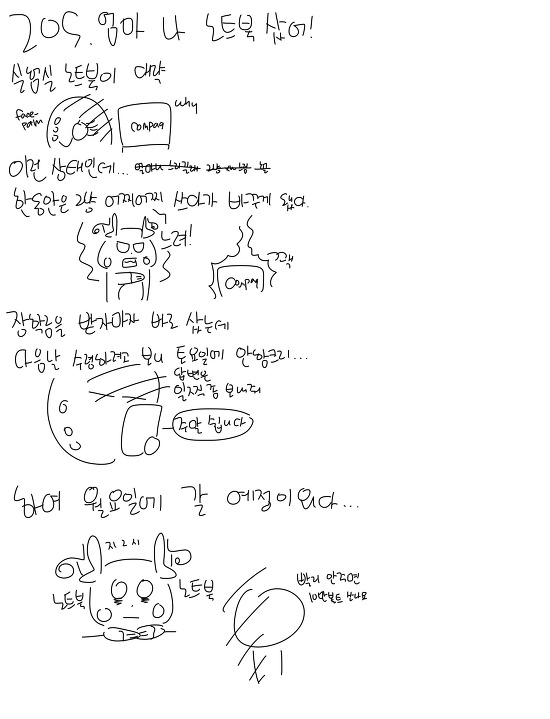 205. 엄마 나 노트북 삽어!
실험실 노트북이 대략
face-palm
compaq
why
이런 상태인데...
한동안은 걍 어찌어찌 쓰다가 바꾸게 됐다.
느려!
compaq
끄액
장학금을 받자마자 바로 샀는데
다음날 수령하려고 보니 토요일에 안항크리...
답변은
일찍좀 보내줘
주말 쉽니다
하여 월요일에 갈 예정이외다...
지2시
노트북
노트북
빨리 안주면
10만볼트 쏜다요